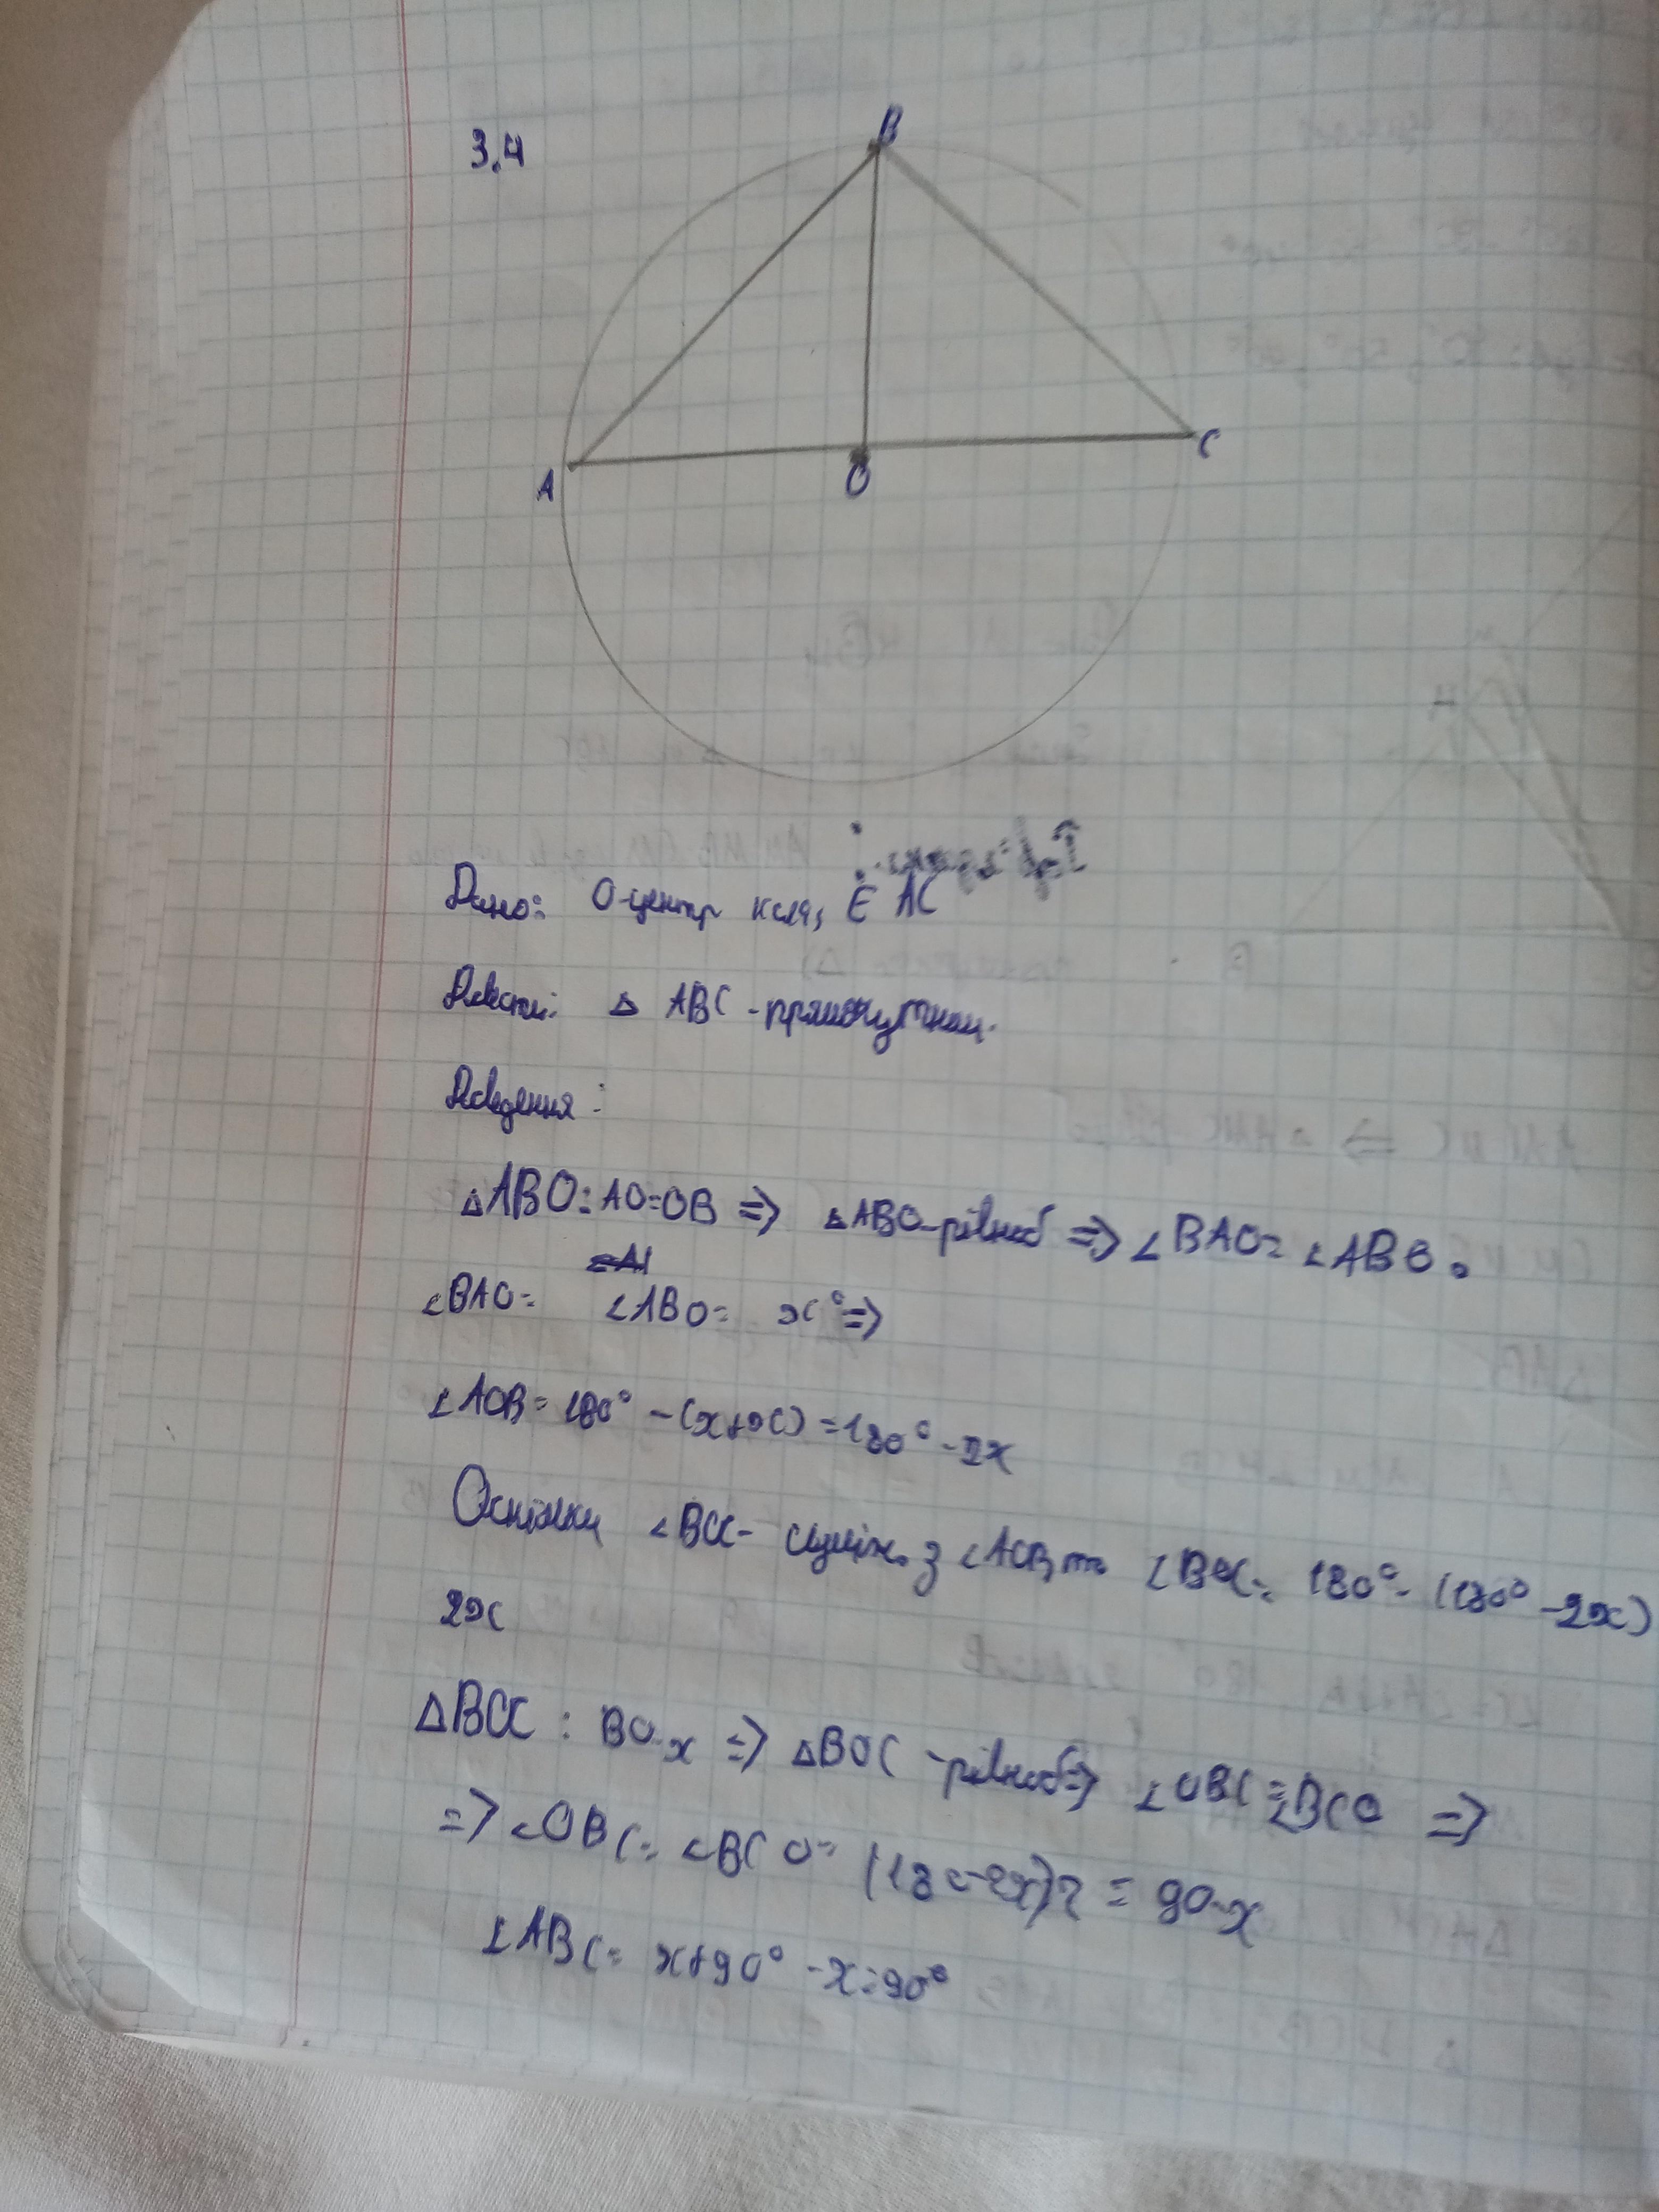 3.4
B
A
O
C
Дано: О-центр кола, Є АС
Довести: △ ABC - прямокутний.
Доведення:
△ABO: AO=OB => △ABO-рівноб => ∠BAO= ∠ABO.
∠BAO= ∠ABO= x° =>
∠AOB= 180° -(x+x) =180° -2x
Оскільки ∠BOC- суміж. з ∠AOB, то ∠BOC= 180°- (180° -2x)
2x
△BOC : => △BOC -рівноб=> ∠OBC=∠BCO =>
=> ∠OBC= ∠BCO= (180-2x)2 = 90-x
∠ABC= x+90° -x=90°